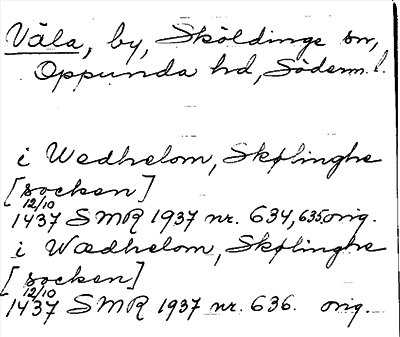 Väla, by, Sköldinge sn,
Oppunda hd, Söderm. l.
i Wedhelom, Skølinghe
[socken]
12/10
1437 SMR 1937 nr. 634, 635 orig.
i Wædhelom, Skølinghe
[socken]
12/10
1437 SMR 1937 nr. 636. orig.